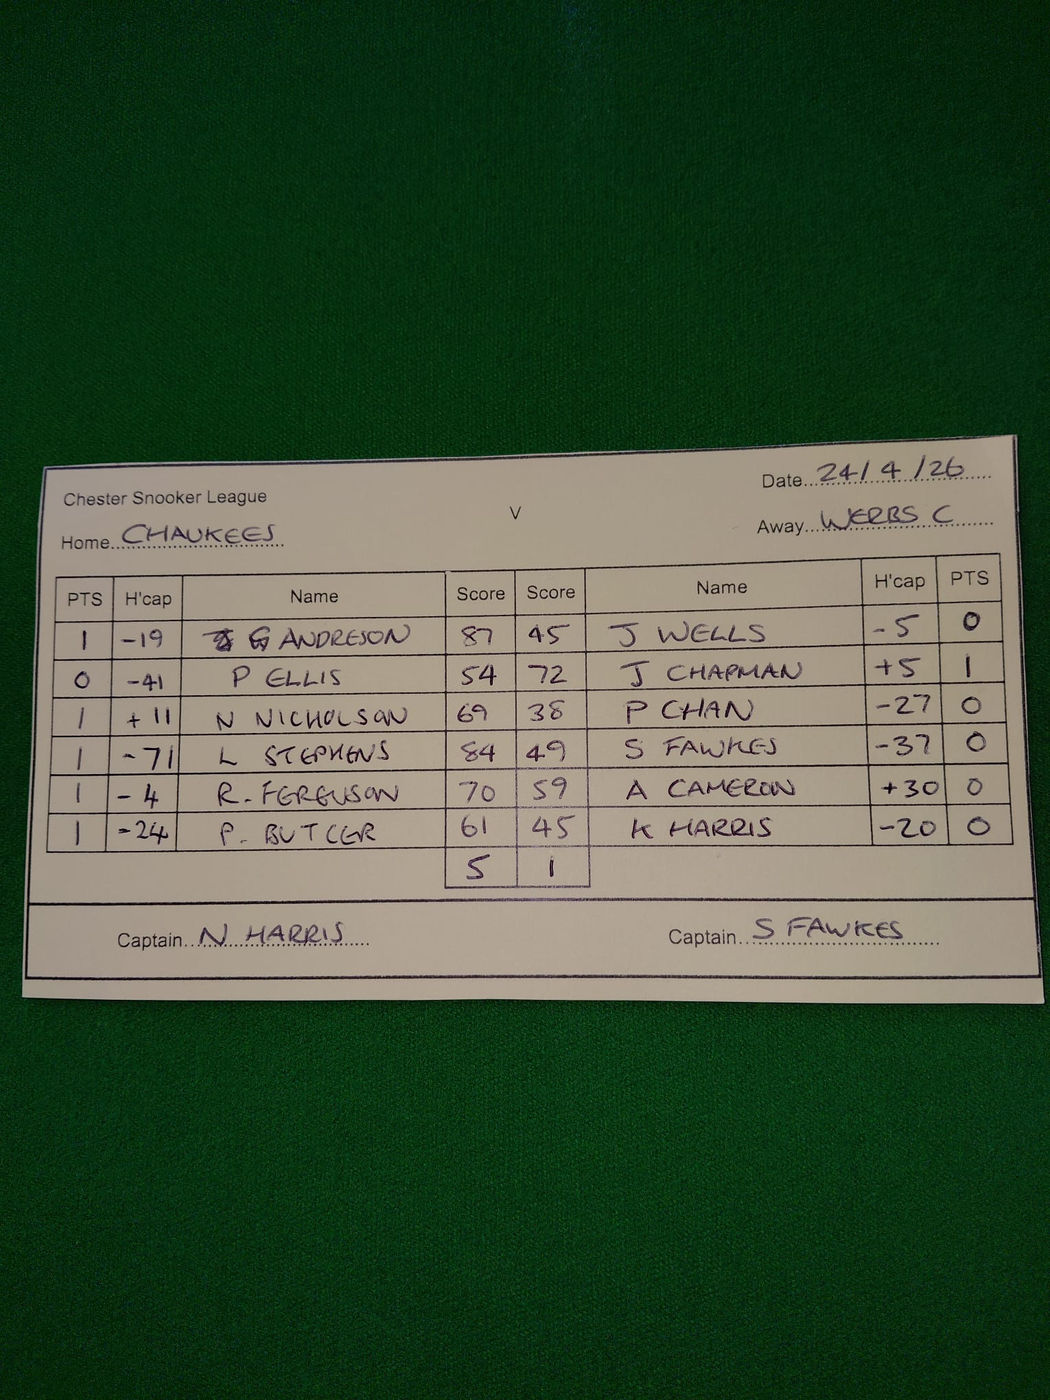 Chester Snooker League
Date 24/4/26
V
Home CHAUKEES
Away WERBS C
PTS H'cap Name Score Score Name H'cap PTS
1 -19 G ANDRESON 87 45 J WELLS -5 0
0 -41 P ELLIS 54 72 J CHAPMAN +5 1
1 +11 N NICHOLSON 69 38 P CHAN -27 0
1 -71 L STEPHENS 84 49 S FAWKES -37 0
1 -4 R. FERGUSON 70 59 A CAMERON +30 0
1 -24 P. BUTLER 61 45 K HARRIS -20 0
5 1
Captain N HARRIS
Captain S FAWKES